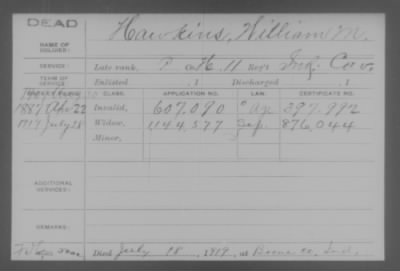 DEAD
Hawkins, William M.
NAME OF SOLDIER:
SERVICE: Late rank, P Co. H, 11 Reg't Ind. Cav.
TERM OF SERVICE: Enlisted , 1 Discharged , 1
CLASS. APPLICATION NO. LAW. CERTIFICATE NO.
1887 Apr 22 Invalid, 607,090 397,992
1919 July 28 Widow, 1144,577 876,044
Minor,
ADDITIONAL SERVICES:
REMARKS:
Died July 18, 1919, at Boone Co., Ind.